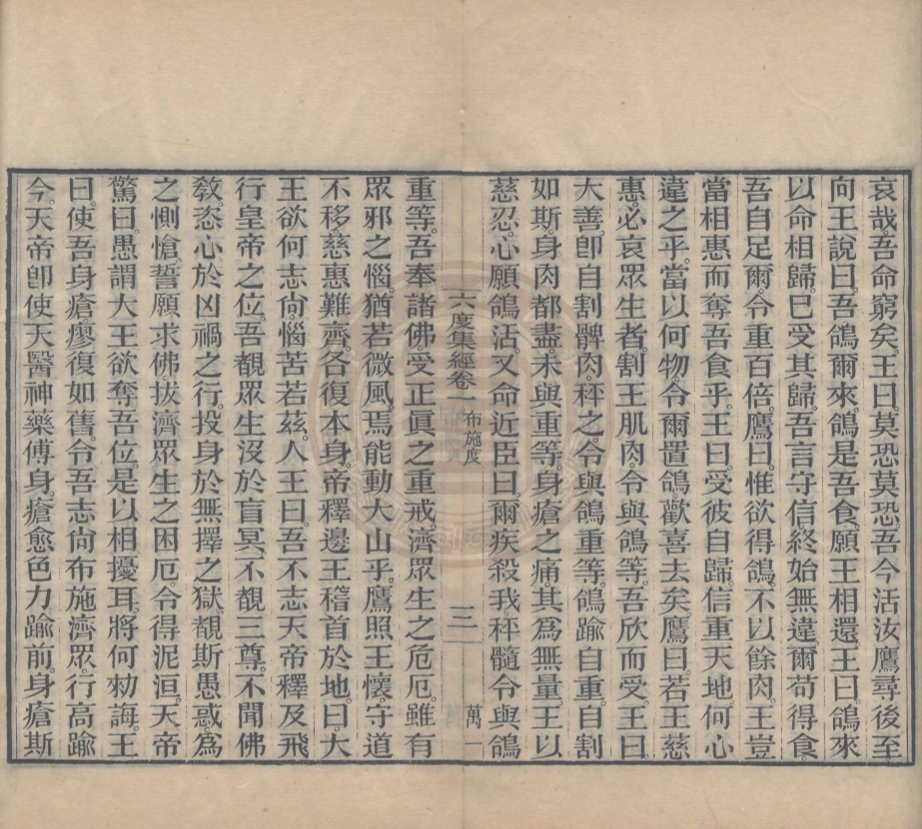 哀哉。吾命窮矣。王曰。莫恐莫恐。吾今活汝。鷹尋後至
向王說曰。吾鴿爾來。鴿是吾食。願王相還。王曰。鴿來
以命相歸。巳受其歸。吾言守信終始無違。爾苟得食。
吾自足爾。令重百倍。鷹曰。惟欲得鴿。不以餘肉。王豈
當相惠而奪吾食乎。王曰。受彼自歸。信重天地。何心
違之乎。當以何物。令爾置鴿。歡喜去矣。鷹曰。若王慈
惠。必哀眾生者。割王肌肉。令與鴿等。吾欣而受。王曰
大善。卽自割髀肉秤之。令與鴿重等。鴿踰自重。自割
如斯。身肉都盡。未與重等。身瘡之痛其為無量。王以
慈忍。心願鴿活。又命近臣曰。爾疾殺我秤髓令與鴿
六度集經卷一 布施度 三 萬一
重等。吾奉諸佛受正眞之重戒。濟眾生之危厄。雖有
眾邪之惱。猶若微風焉能動大山乎。鷹照王懷守道
不移。慈惠難齊。各復本身。帝釋邊王稽首於地。曰。大
王欲何志尙。惱苦若茲。人王曰。吾不志天帝釋及飛
行皇帝之位。吾覩眾生沒於盲冥。不覩三尊。不聞佛
敎。恣心於凶禍之行。投身於無擇之獄。覩斯愚惑。為
之惻愴。誓願求佛拔濟眾生之困厄。令得泥洹。天帝
驚曰。愚謂大王欲奪吾位。是以相擾耳。將何勑誨。王
曰。使吾身瘡瘳復如舊。令吾志尙布施濟眾。行高踰
今。天帝卽使天醫神藥傅身。瘡愈色力踰前。身瘡斯